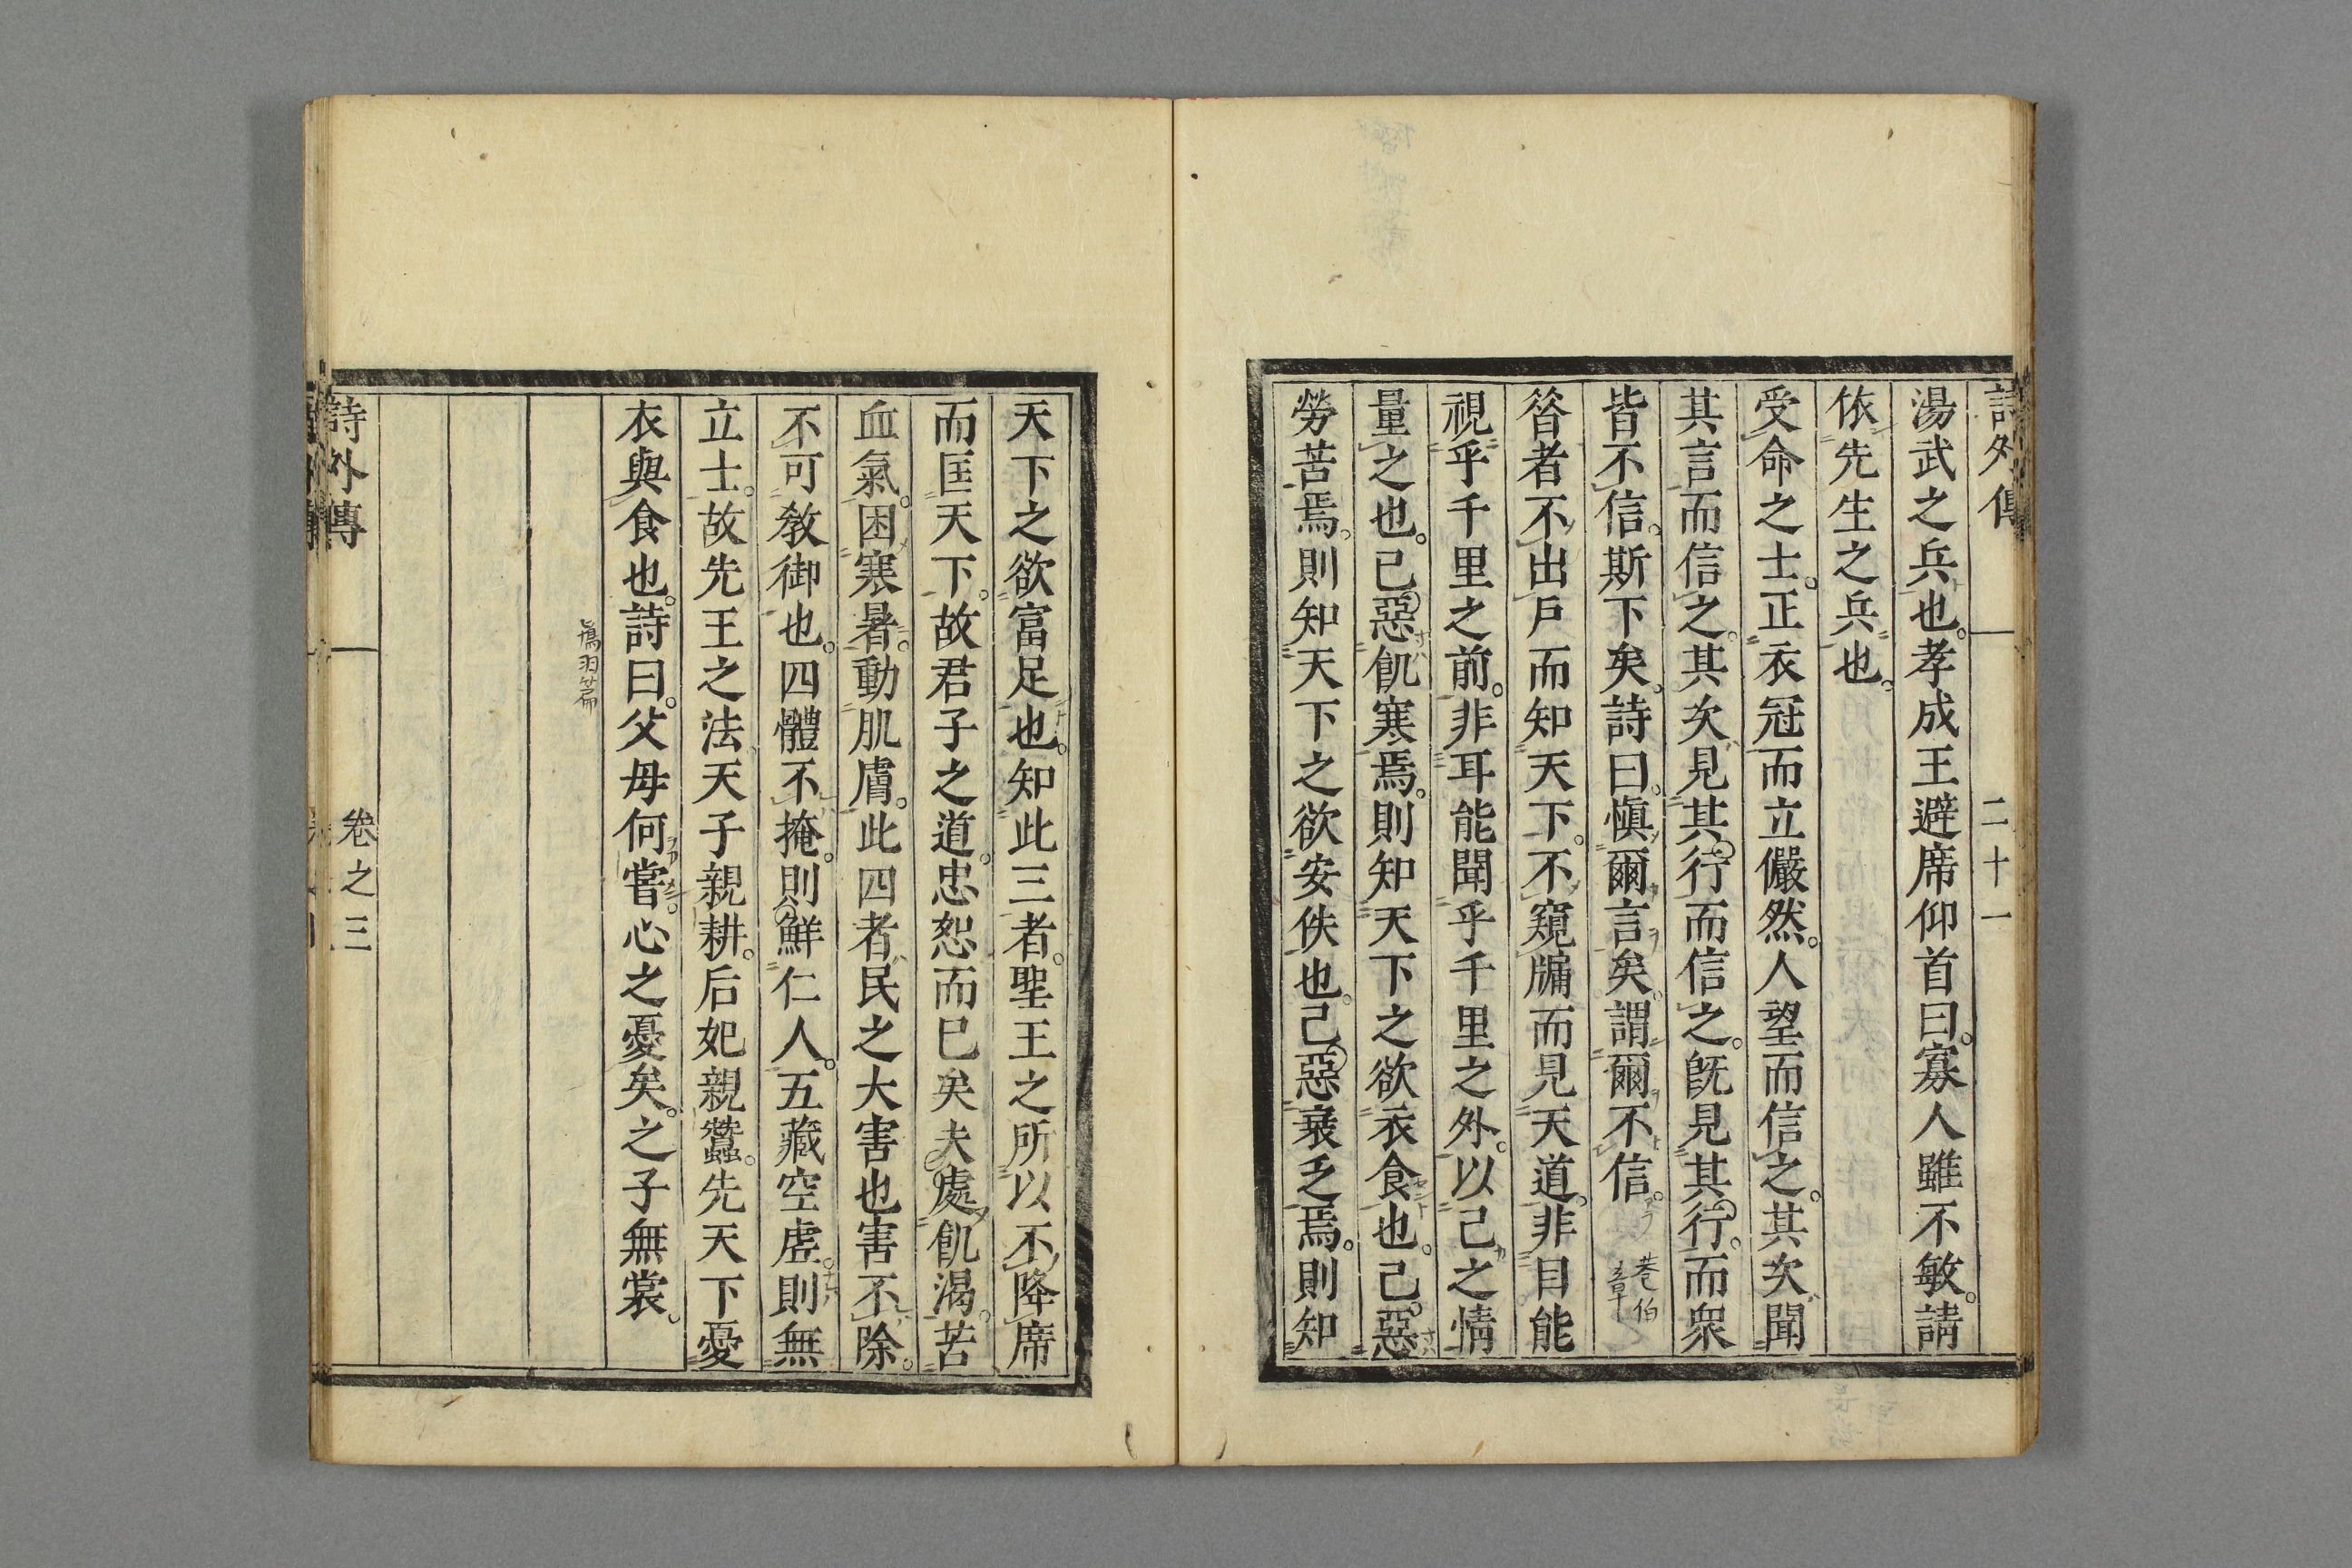 詩外傳 二十一
湯武之兵也。孝成王避席仰首曰。寡人雖不敏。請
依先生之兵也。
受命之士。正衣冠而立儼然。人望而信之。其次聞
其言而信之。其次見其行而信之。既見其行。而衆
皆不信。斯下矣。詩曰。愼爾言矣。謂爾不信。
巷伯
章
昝者不出戶而知天下。不窺牖而見天道。非目能
視乎千里之前。非耳能聞乎千里之外。以己之情
量之也。己惡飢寒焉。則知天下之欲衣食也。己惡
勞苦焉。則知天下之欲安佚也。己惡衰乏焉。則知
天下之欲富足也。知此三者。聖王之所以不降席
而匡天下。故君子之道。忠恕而已矣夫處飢渴。苦
血氣。困寒暑。動肌膚。此四者民之大害也害不除。
不可敎御也。四體不掩。則鮮仁人。五藏空虛。則無
立士。故先王之法天子親耕。后妃親蠶。先天下憂
衣與食也。詩曰。父母何嘗。心之憂矣。之子無裳。
鴇羽篇
詩外傳 卷之三